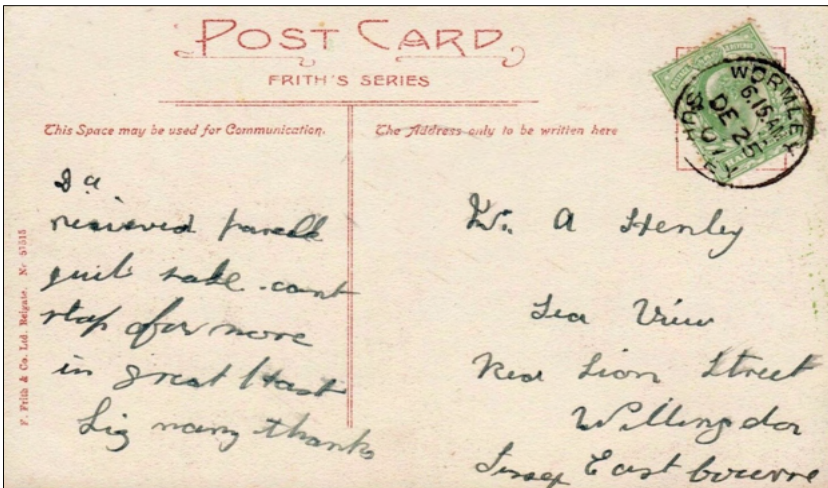 POST CARD
FRITH'S SERIES
This Space may be used for Communication.
The Address only to be written here
WORMLEY
6.15 AM
DE 25
07
HALF
D a
recieved parcell
quite safe. cant
stop for more
in great Hast
Liz many thanks
F. Frith & Co. Ltd. Reigate. No 57515
A Henley
Sea View
Red Lion Street
Willingdon
Sussex Eastbourne